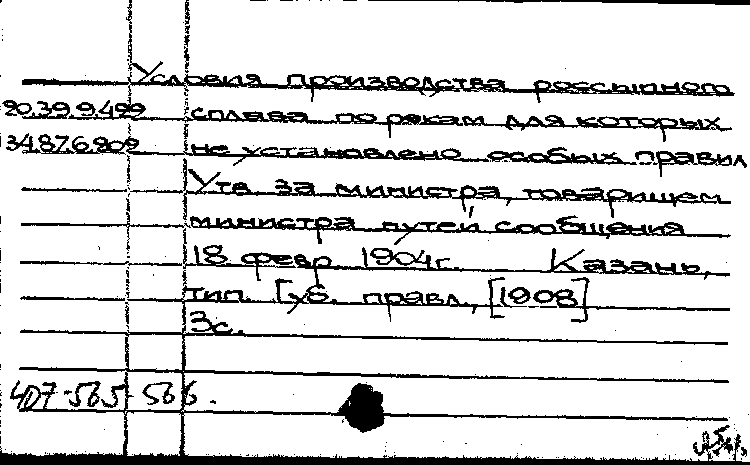 Условия производства россыпного
20.39.9.499 сплава по рекам для которых
34.87.6.909 не установлено особых правил
Утв. за министра, товарищем
министра путей сообщения
18 февр. 1904г. Казань,
тип. Губ. правл., [1908]
3с.
407-565-566.